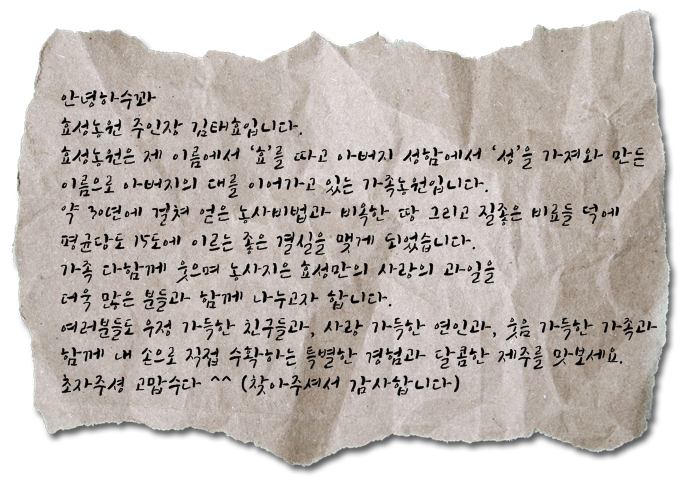 안녕하수꽈
효성농원 주인장 김태효입니다.
효성농원은 제 이름에서 '효'를 따고 아버지 성함에서 '성'을 가져와 만든
이름으로 아버지의 대를 이어가고 있는 가족농원입니다.
약 30년에 걸쳐 얻은 농사비법과 비옥한 땅 그리고 질좋은 비료들 덕에
평균당도 15도에 이르는 좋은 결실을 맺게 되었습니다.
가족 다함께 웃으며 농사지은 효성만의 사랑의 과일을
더욱 많은 분들과 함께 나누고자 합니다.
여러분들도 우정 가득한 친구들과, 사랑 가득한 연인과, 웃음 가득한 가족과
함께 내 손으로 직접 수확하는 특별한 경험과 달콤한 제주를 맛보세요.
초자주셩 고맙수다 ^^ (찾아주셔서 감사합니다)